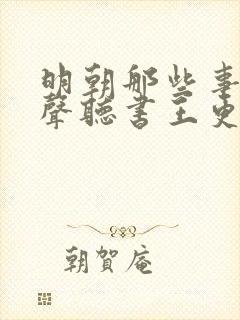 明朝那些事
聲聽書王更
朝賀庵